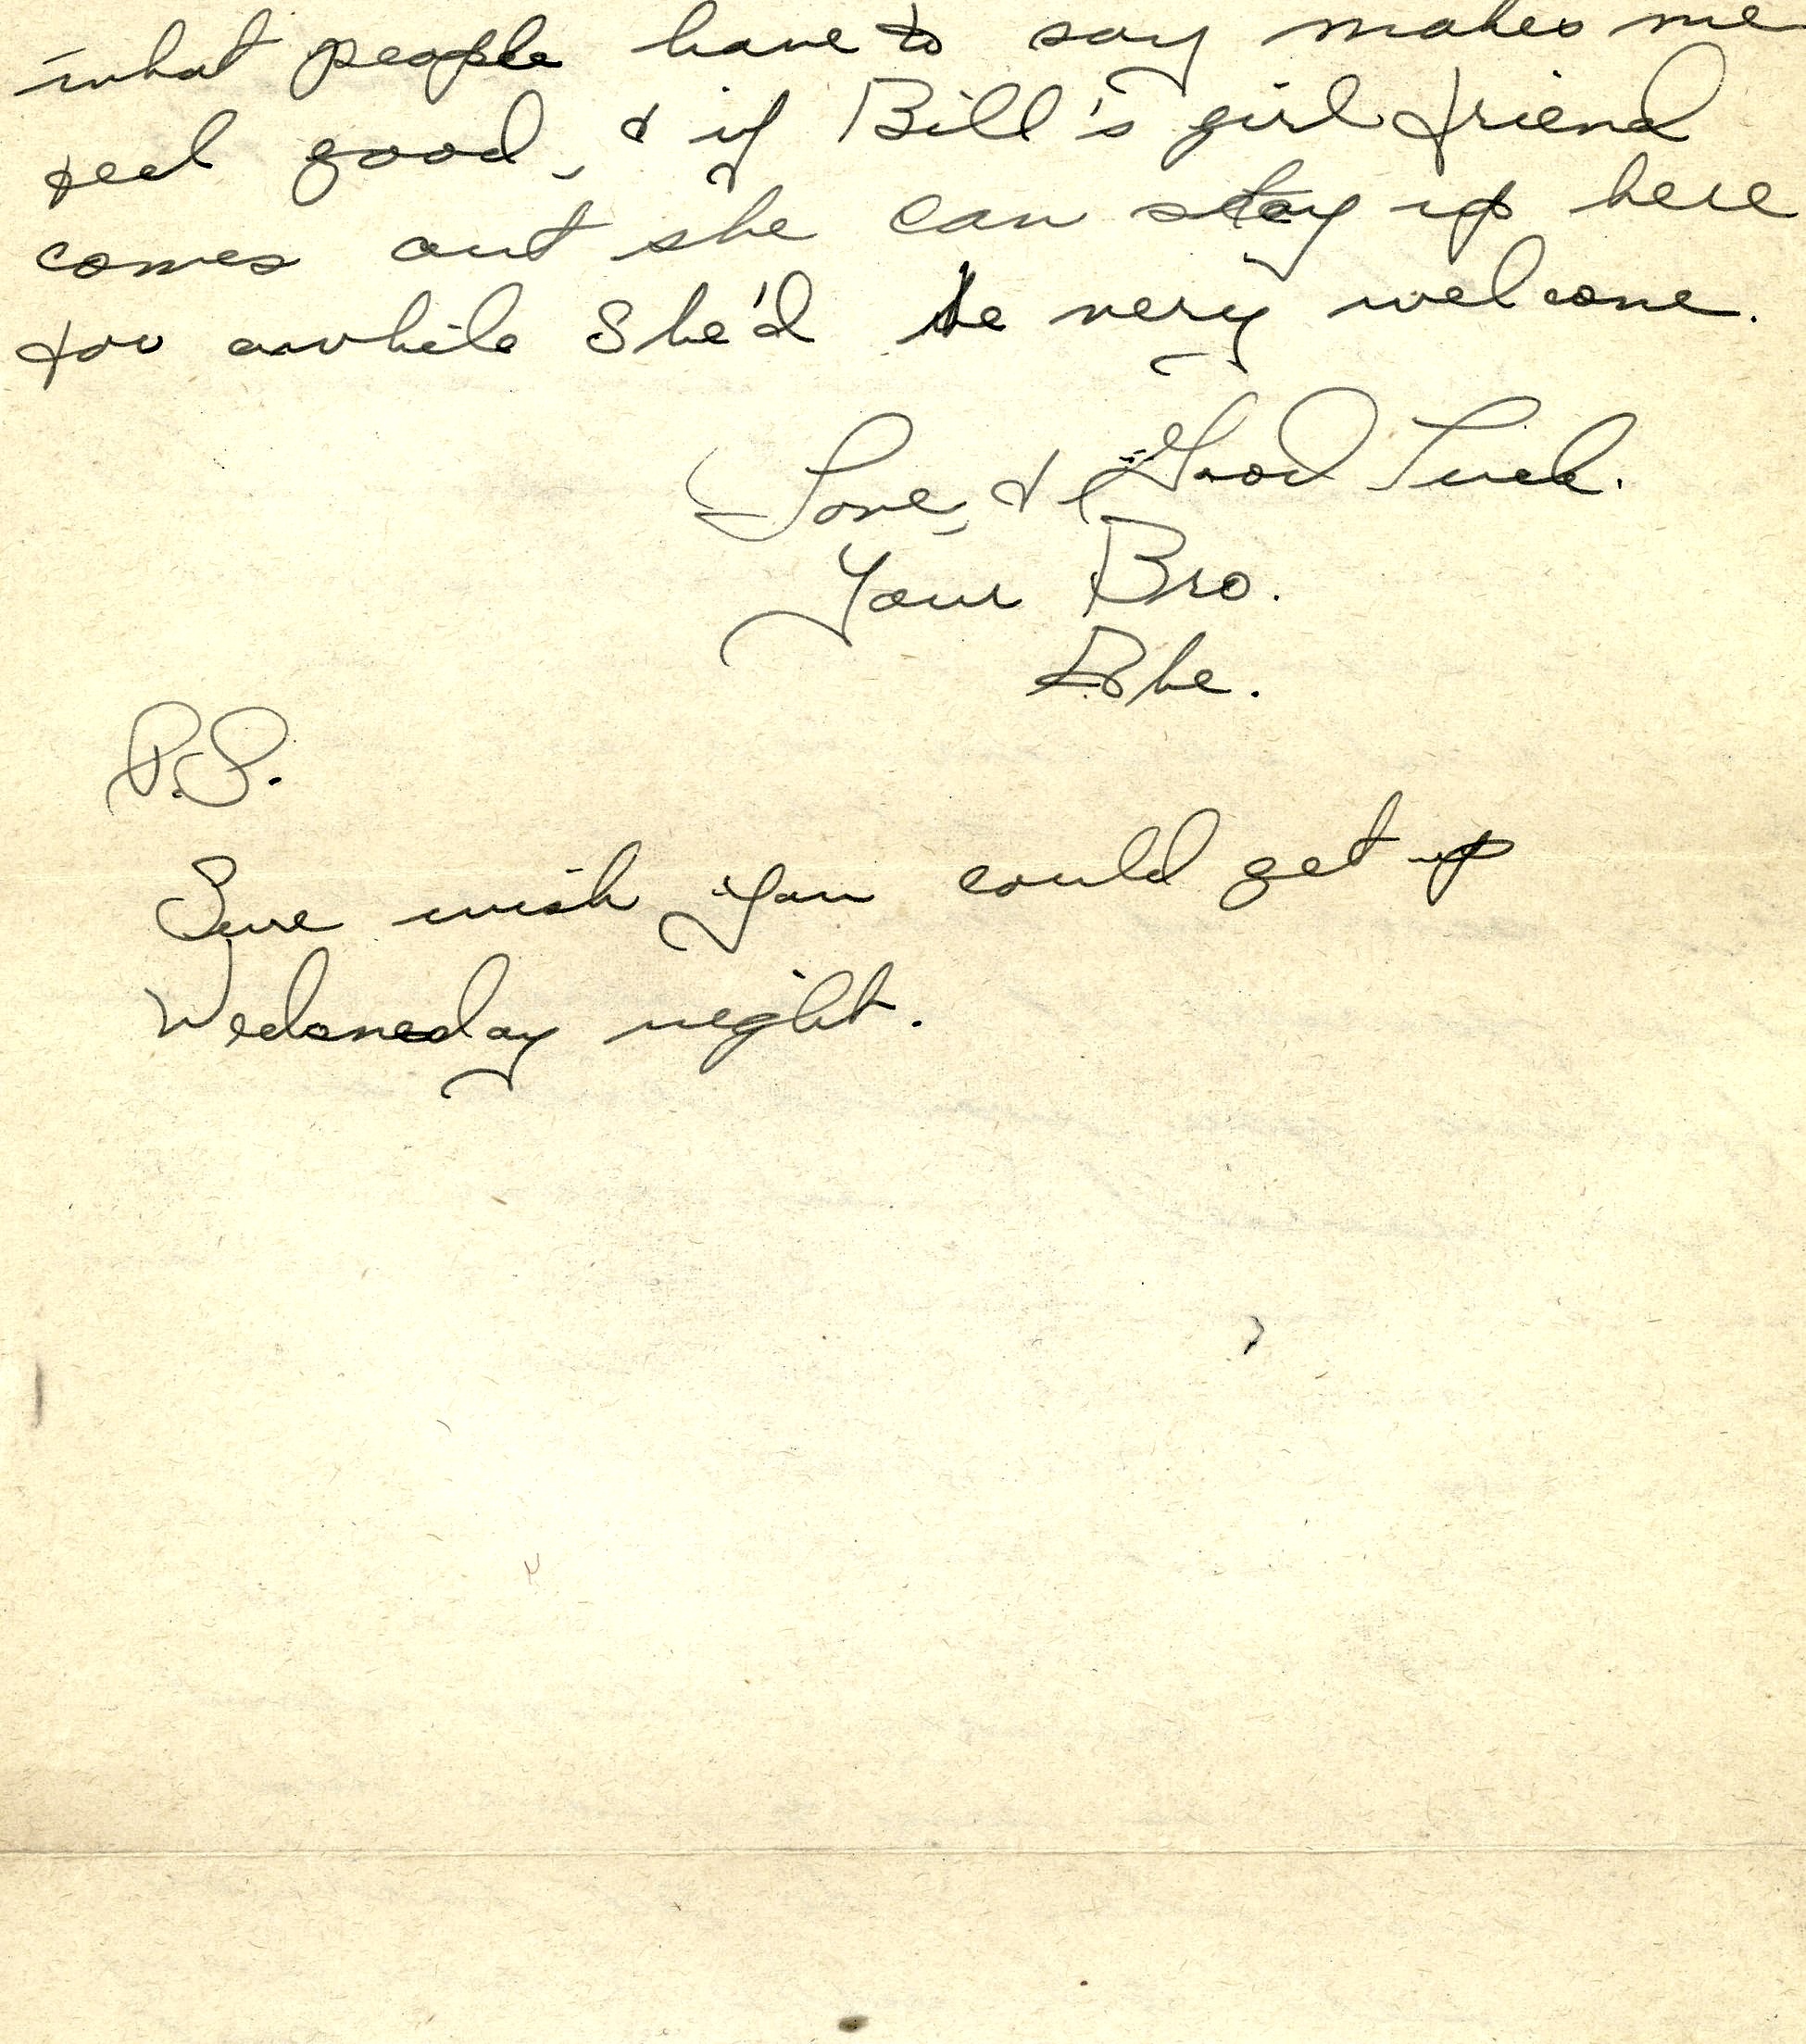 what people have to say makes me
feel good, & if Bill's girl friend
comes out she can stay up here
for awhile She'd be very welcome.
Love, & Good Luck.
Your Bro.
Abe.
P.S.
Sure wish you could get up
Wedsneday night.